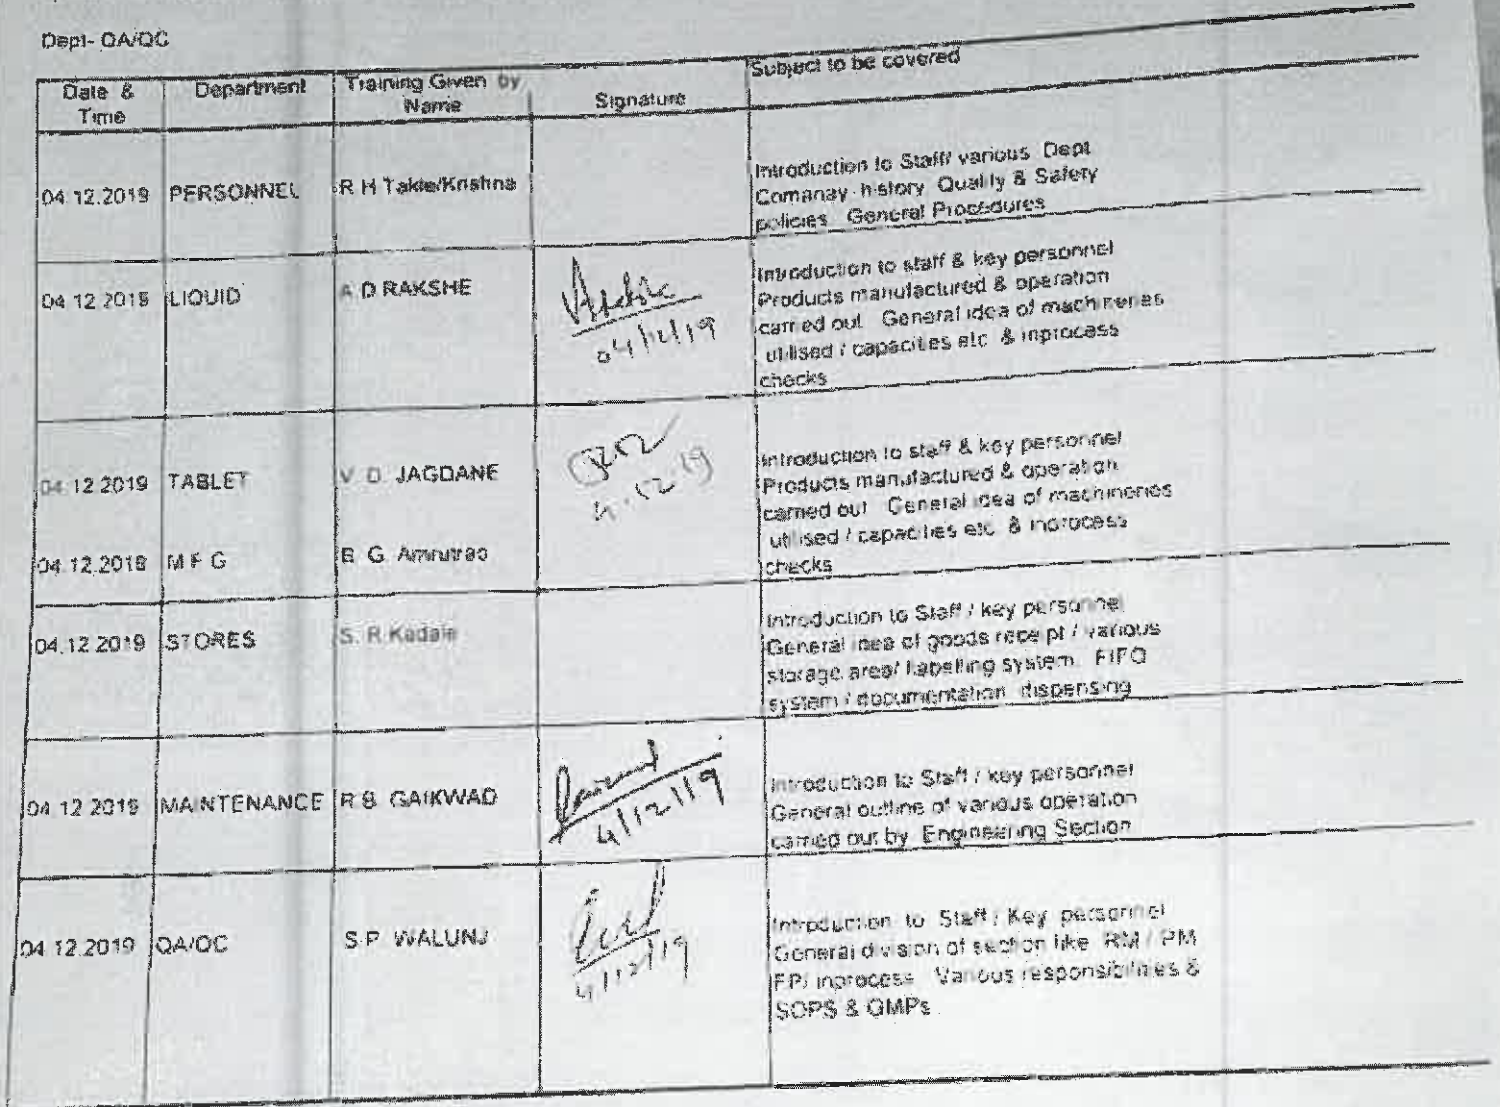 Dept- QA/QC
Date & Time | Department | Training Given by Name | Signature | Subject to be covered
04.12.2019 | PERSONNEL | R H Takte/Krishna
Introduction to Staff/ various Dept
Comanay history Quality & Safety
policies General Procedures
04 12 2019 | LIQUID | A D RAKSHE | 04/12/19
Introduction to staff & key personnel
Products manufactured & operation
carried out General idea of machineries
utilised / capacities etc & inprocess
checks
04 12 2019 | TABLET | V D JAGDANE | 4.12.19
Introduction to staff & key personnel
Products manufactured & operation
carried out General idea of machineries
utilised / capacities etc & inprocess
checks
04.12.2019 | M F G | B G Amrutrao
04.12.2019 | STORES | S. R Kadale
Introduction to Staff / key personnel
General idea of goods receipt / various
storage area/ Labelling system FIFO
system / documentation dispensing
04 12 2019 | MAINTENANCE | R B GAIKWAD | 4/12/19
Introduction to Staff / key personnel
General outline of various operation
carried out by Engineering Section
04 12.2019 | QA/QC | S P WALUNJ | 4/12/19
Introduction to Staff / Key personnel
General division of section like RM / PM
FP/ inprocess Various responsibilities &
SOPS & GMPs